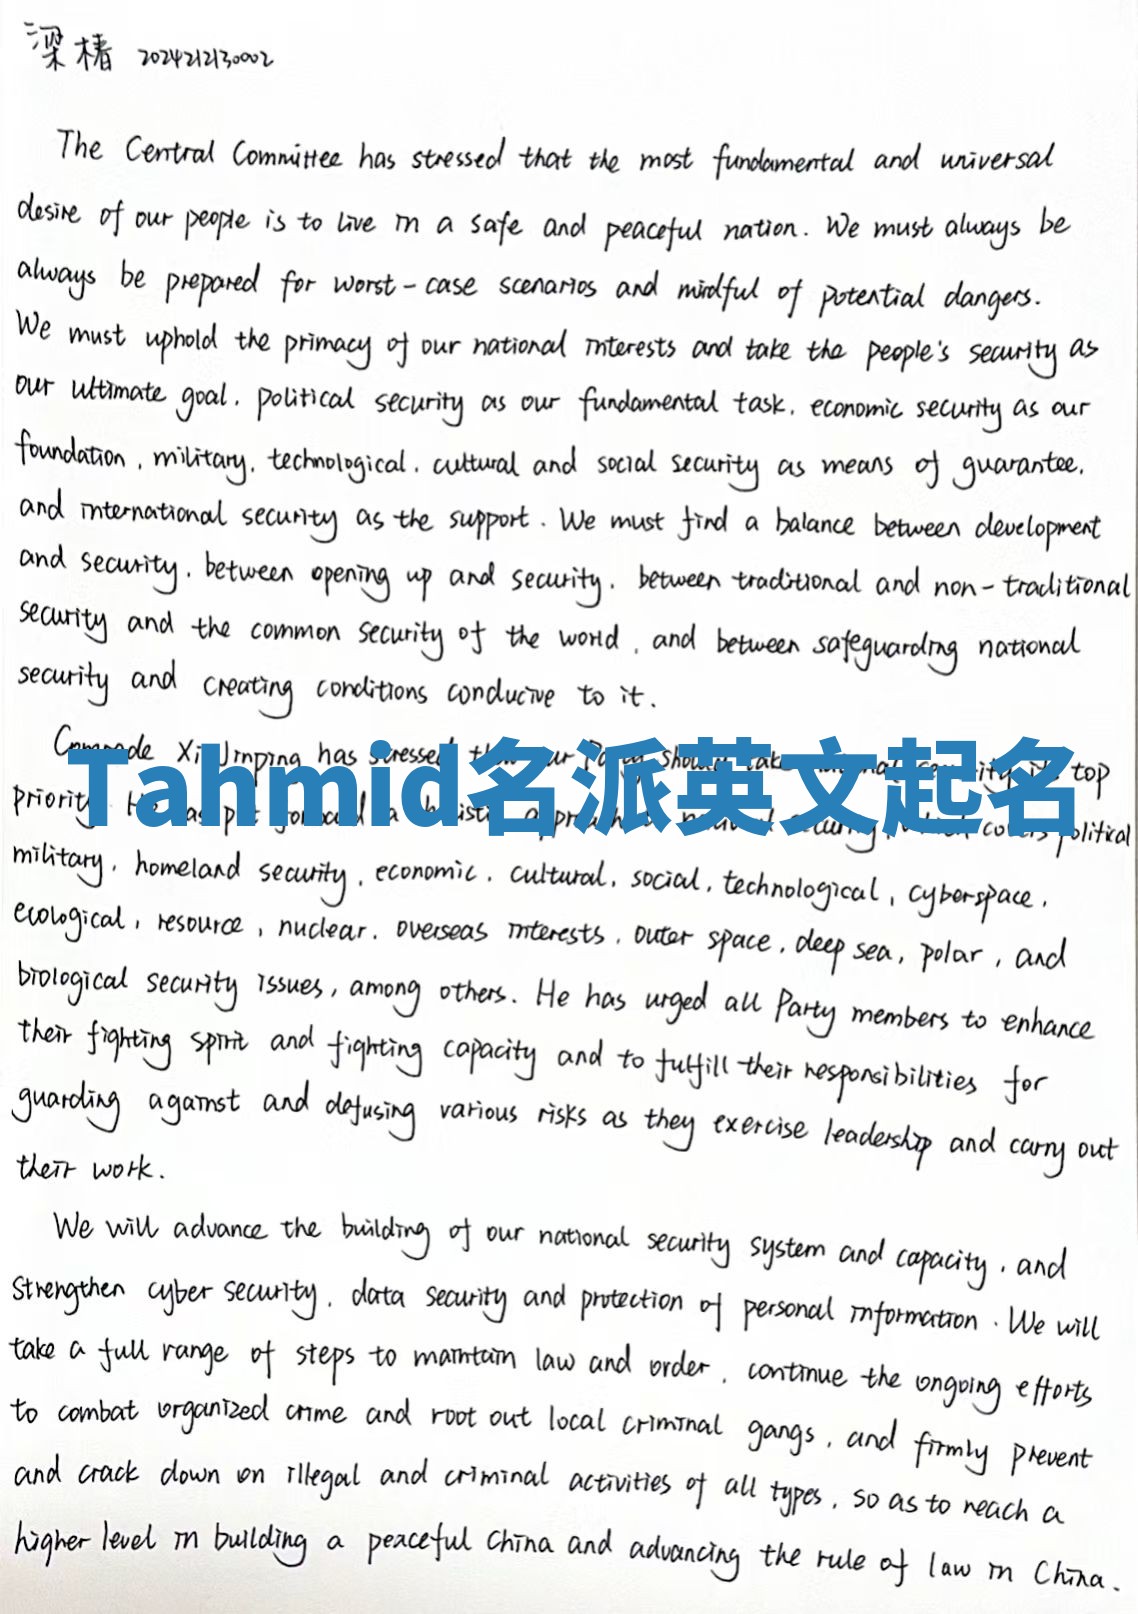 梁椿 2024212130002
The Central Committee has stressed that the most fundamental and universal
desire of our people is to live in a safe and peaceful nation. We must always be
always be prepared for worst-case scenarios and mindful of potential dangers.
We must uphold the primacy of our national interests and take the people's security as
our ultimate goal, political security as our fundamental task, economic security as our
foundation, military, technological, cultural and social security as means of guarantee,
and international security as the support. We must find a balance between development
and security, between opening up and security, between traditional and non-traditional
security and the common security of the world, and between safeguarding national
security and creating conditions conducive to it.
Comrade Xi Jinping has stressed that our Party should take national security its top
Tahmid名派英文起名
priority. He has put forward a holistic approach to national security, which covers political
military, homeland security, economic, cultural, social, technological, cyberspace,
ecological, resource, nuclear, overseas interests, outer space, deep sea, polar, and
biological security issues, among others. He has urged all Party members to enhance
their fighting spirit and fighting capacity and to fulfill their responsibilities for
guarding against and defusing various risks as they exercise leadership and carry out
their work.
We will advance the building of our national security system and capacity, and
strengthen cyber security, data security and protection of personal information. We will
take a full range of steps to maintain law and order, continue the ongoing efforts
to combat organized crime and root out local criminal gangs, and firmly prevent
and crack down on illegal and criminal activities of all types, so as to reach a
higher level in building a peaceful China and advancing the rule of law in China.